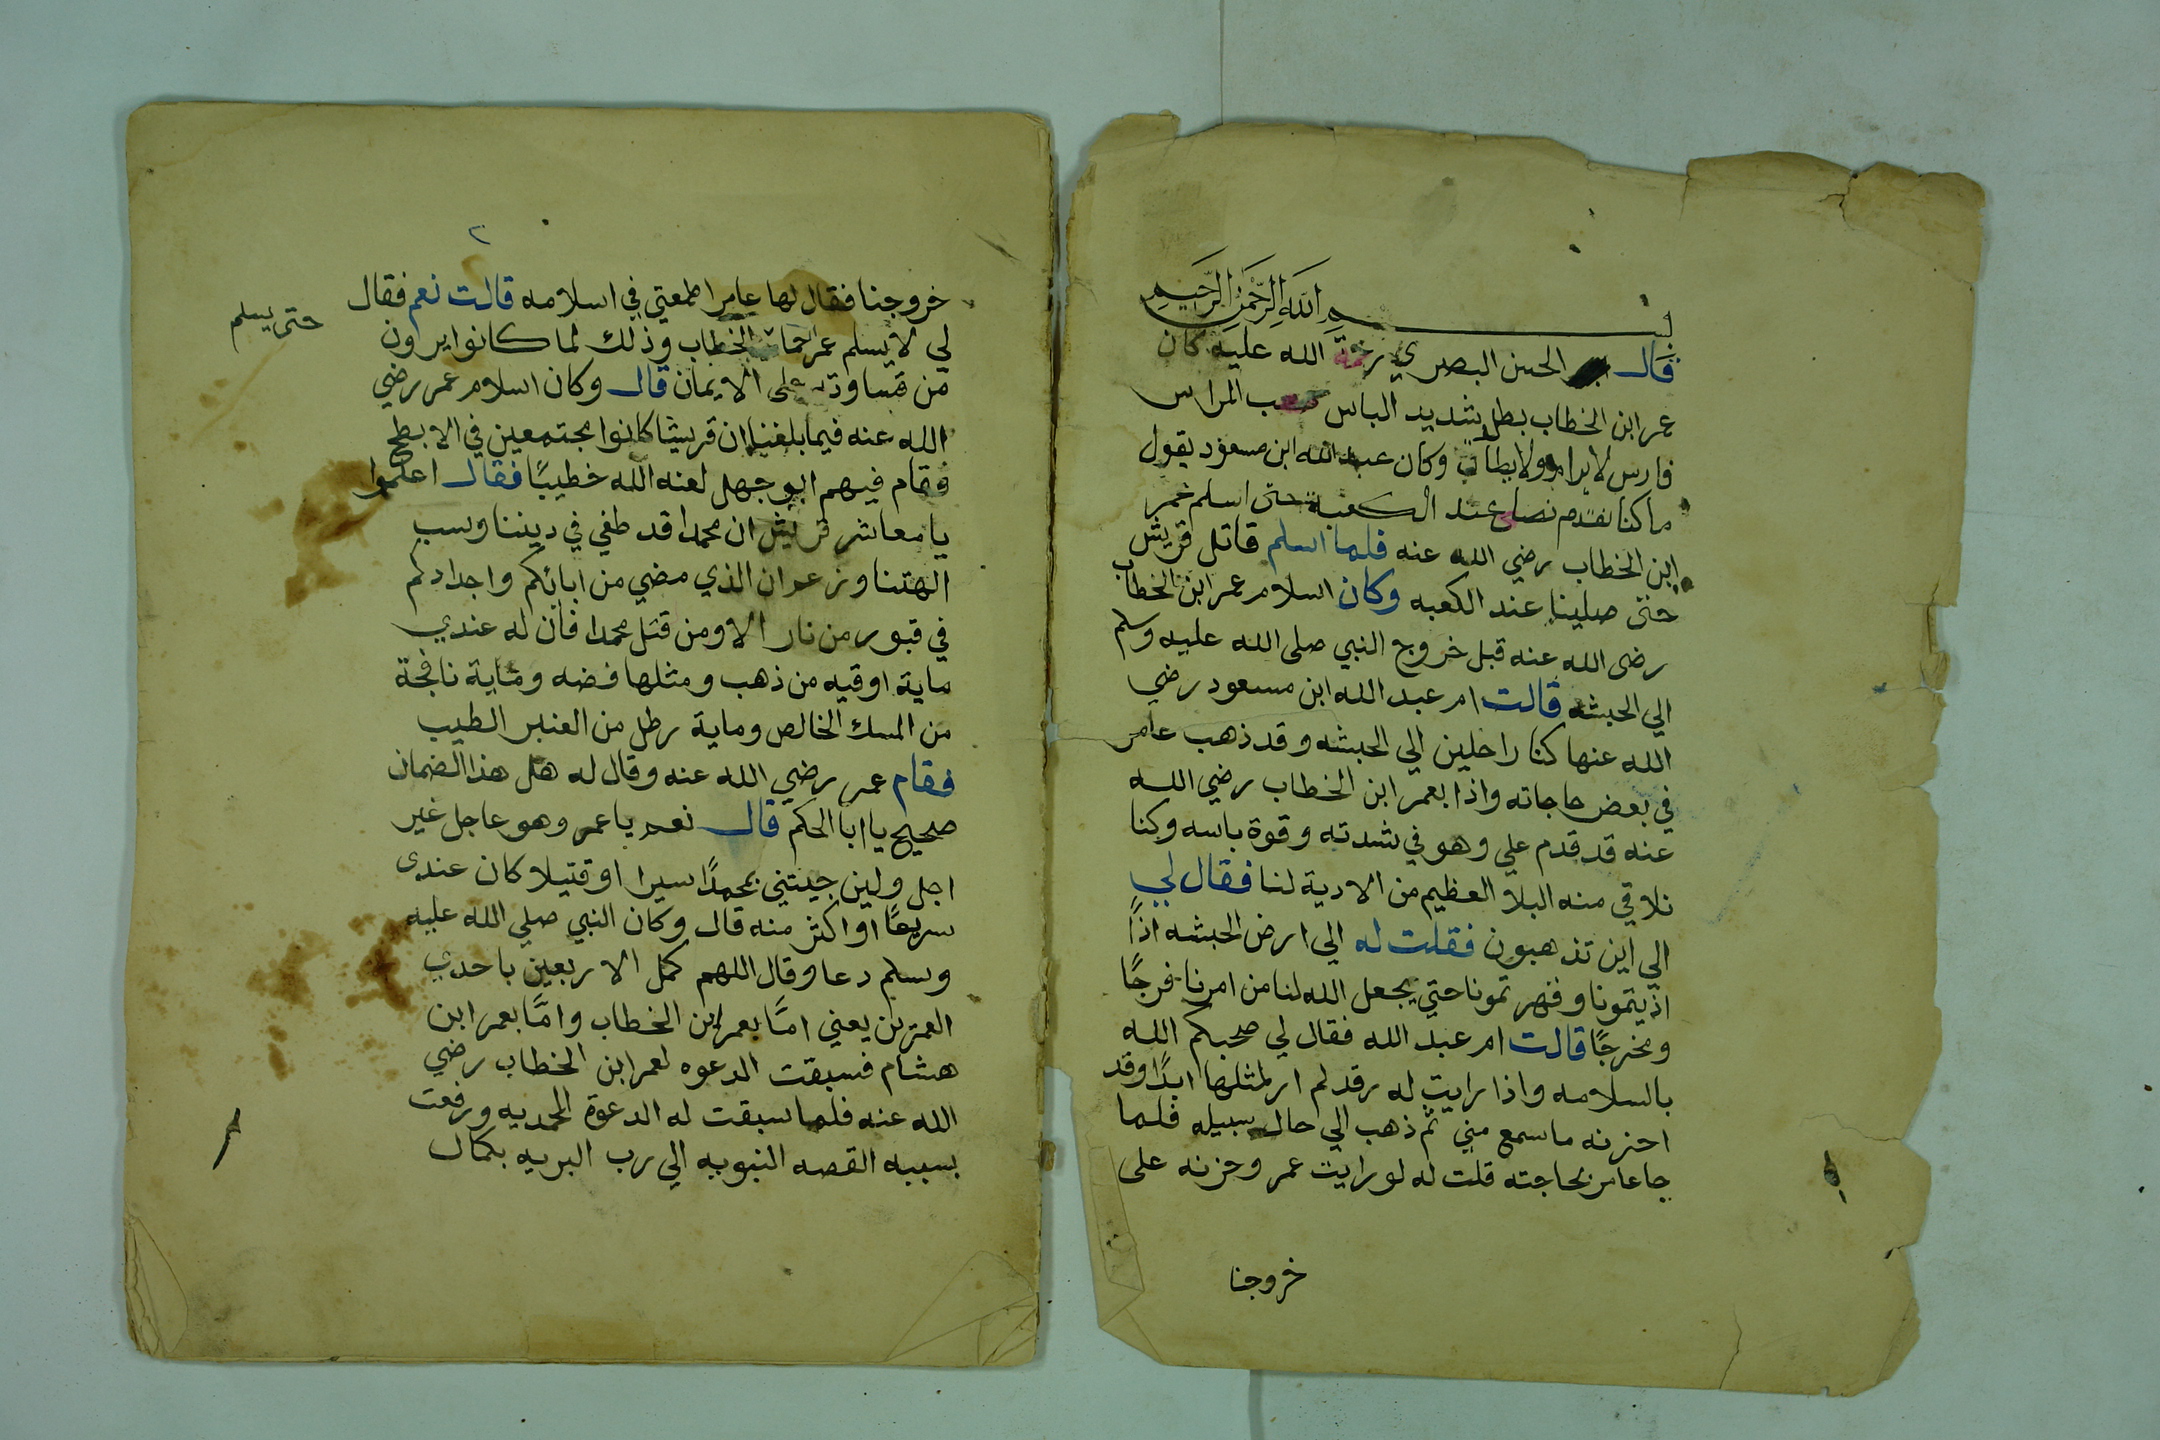 بسم الله الرحمن الرحيم
قال الحسن البصري رحمة الله عليه كان
عمر ابن الخطاب بطل شديد الباس صعب المراس
فارس لا يرام ولا يطاق وكان عبد الله ابن مسعود يقول
ما كنا نقدم نصلي عند الكعبة حتى اسلم عمر
ابن الخطاب رضي الله عنه فلما اسلم قاتل قريش
حتى صلينا عند الكعبه وكان اسلام عمر ابن الخطاب
رضى الله عنه قبل خروج النبي صلى الله عليه وسلم
الي الحبشه قالت ام عبد الله ابن مسعود رضي
الله عنها كنا راحلين الي الحبشه وقد ذهب عامر
في بعض حاجاته واذا بعمر ابن الخطاب رضي الله
عنه قد قدم علي وهو في شدته وقوة باسه وكنا
نلاقي منه البلا العظيم من الادية لنا فقال لي
الي اين تذهبون فقلت له الي ارض الحبشه اذًا
اذيتمونا وقهرتمونا حتي يجعل الله لنا من امرنا فرجًا
ومخرجًا قالت ام عبد الله فقال لي صحبكم الله
بالسلامه واذا رايت له رقد لم ار لمثلها ابدًا وقد
احزنه ما سمع مني ثم ذهب الي حال سبيله فلما
جا عامر بحاجته قلت له لو رايت عمر وحزنه على
خروجنا
٢
خروجنا فقال لها عامر اطمعتي في اسلامه قالت نعم فقال
حتى يسلم
لي لا يسلم عمر الخطاب وذلك لما كانوا يرون
من قساوته على الايمان قال وكان اسلام عمر رضي
الله عنه فيما بلغنا ان قريشا كانوا مجتمعين في الابطح
فقام فيهم ابو جهل لعنه الله خطيبًا فقال اعلموا
يا معاشر قريش ان محمدا قد طغي في ديننا وسب
الهتنا وزعم ان الذي مضي من ابائكم واجدادكم
في قبور من نار الا ومن قتل محمدا فان له عندي
ماية اوقيه من ذهب ومثلها فضه وماية نافجة
من المسك الخالص وماية رطل من العنبر الطيب
فقام عمر رضي الله عنه وقال له هل هذا الضمان
صحيح يا ابا الحكم قال نعم يا عمر وهو عاجل غير
اجل ولين جيتني بمحمدًا سيرا او قتيلا كان عندى
سريعًا او اكثر منه قال وكان النبي صلي الله عليه
وسلم دعا وقال اللهم كمل الاربعين باحدي
العمرين يعني امّا بعمر ابن الخطاب وامّا بعمر ابن
هشام فسبقت الدعوه لعمر ابن الخطاب رضي
الله عنه فلما سبقت له الدعوة المحمديه ورفعت
بسببه القصه النبويه الي رب البريه بكمال